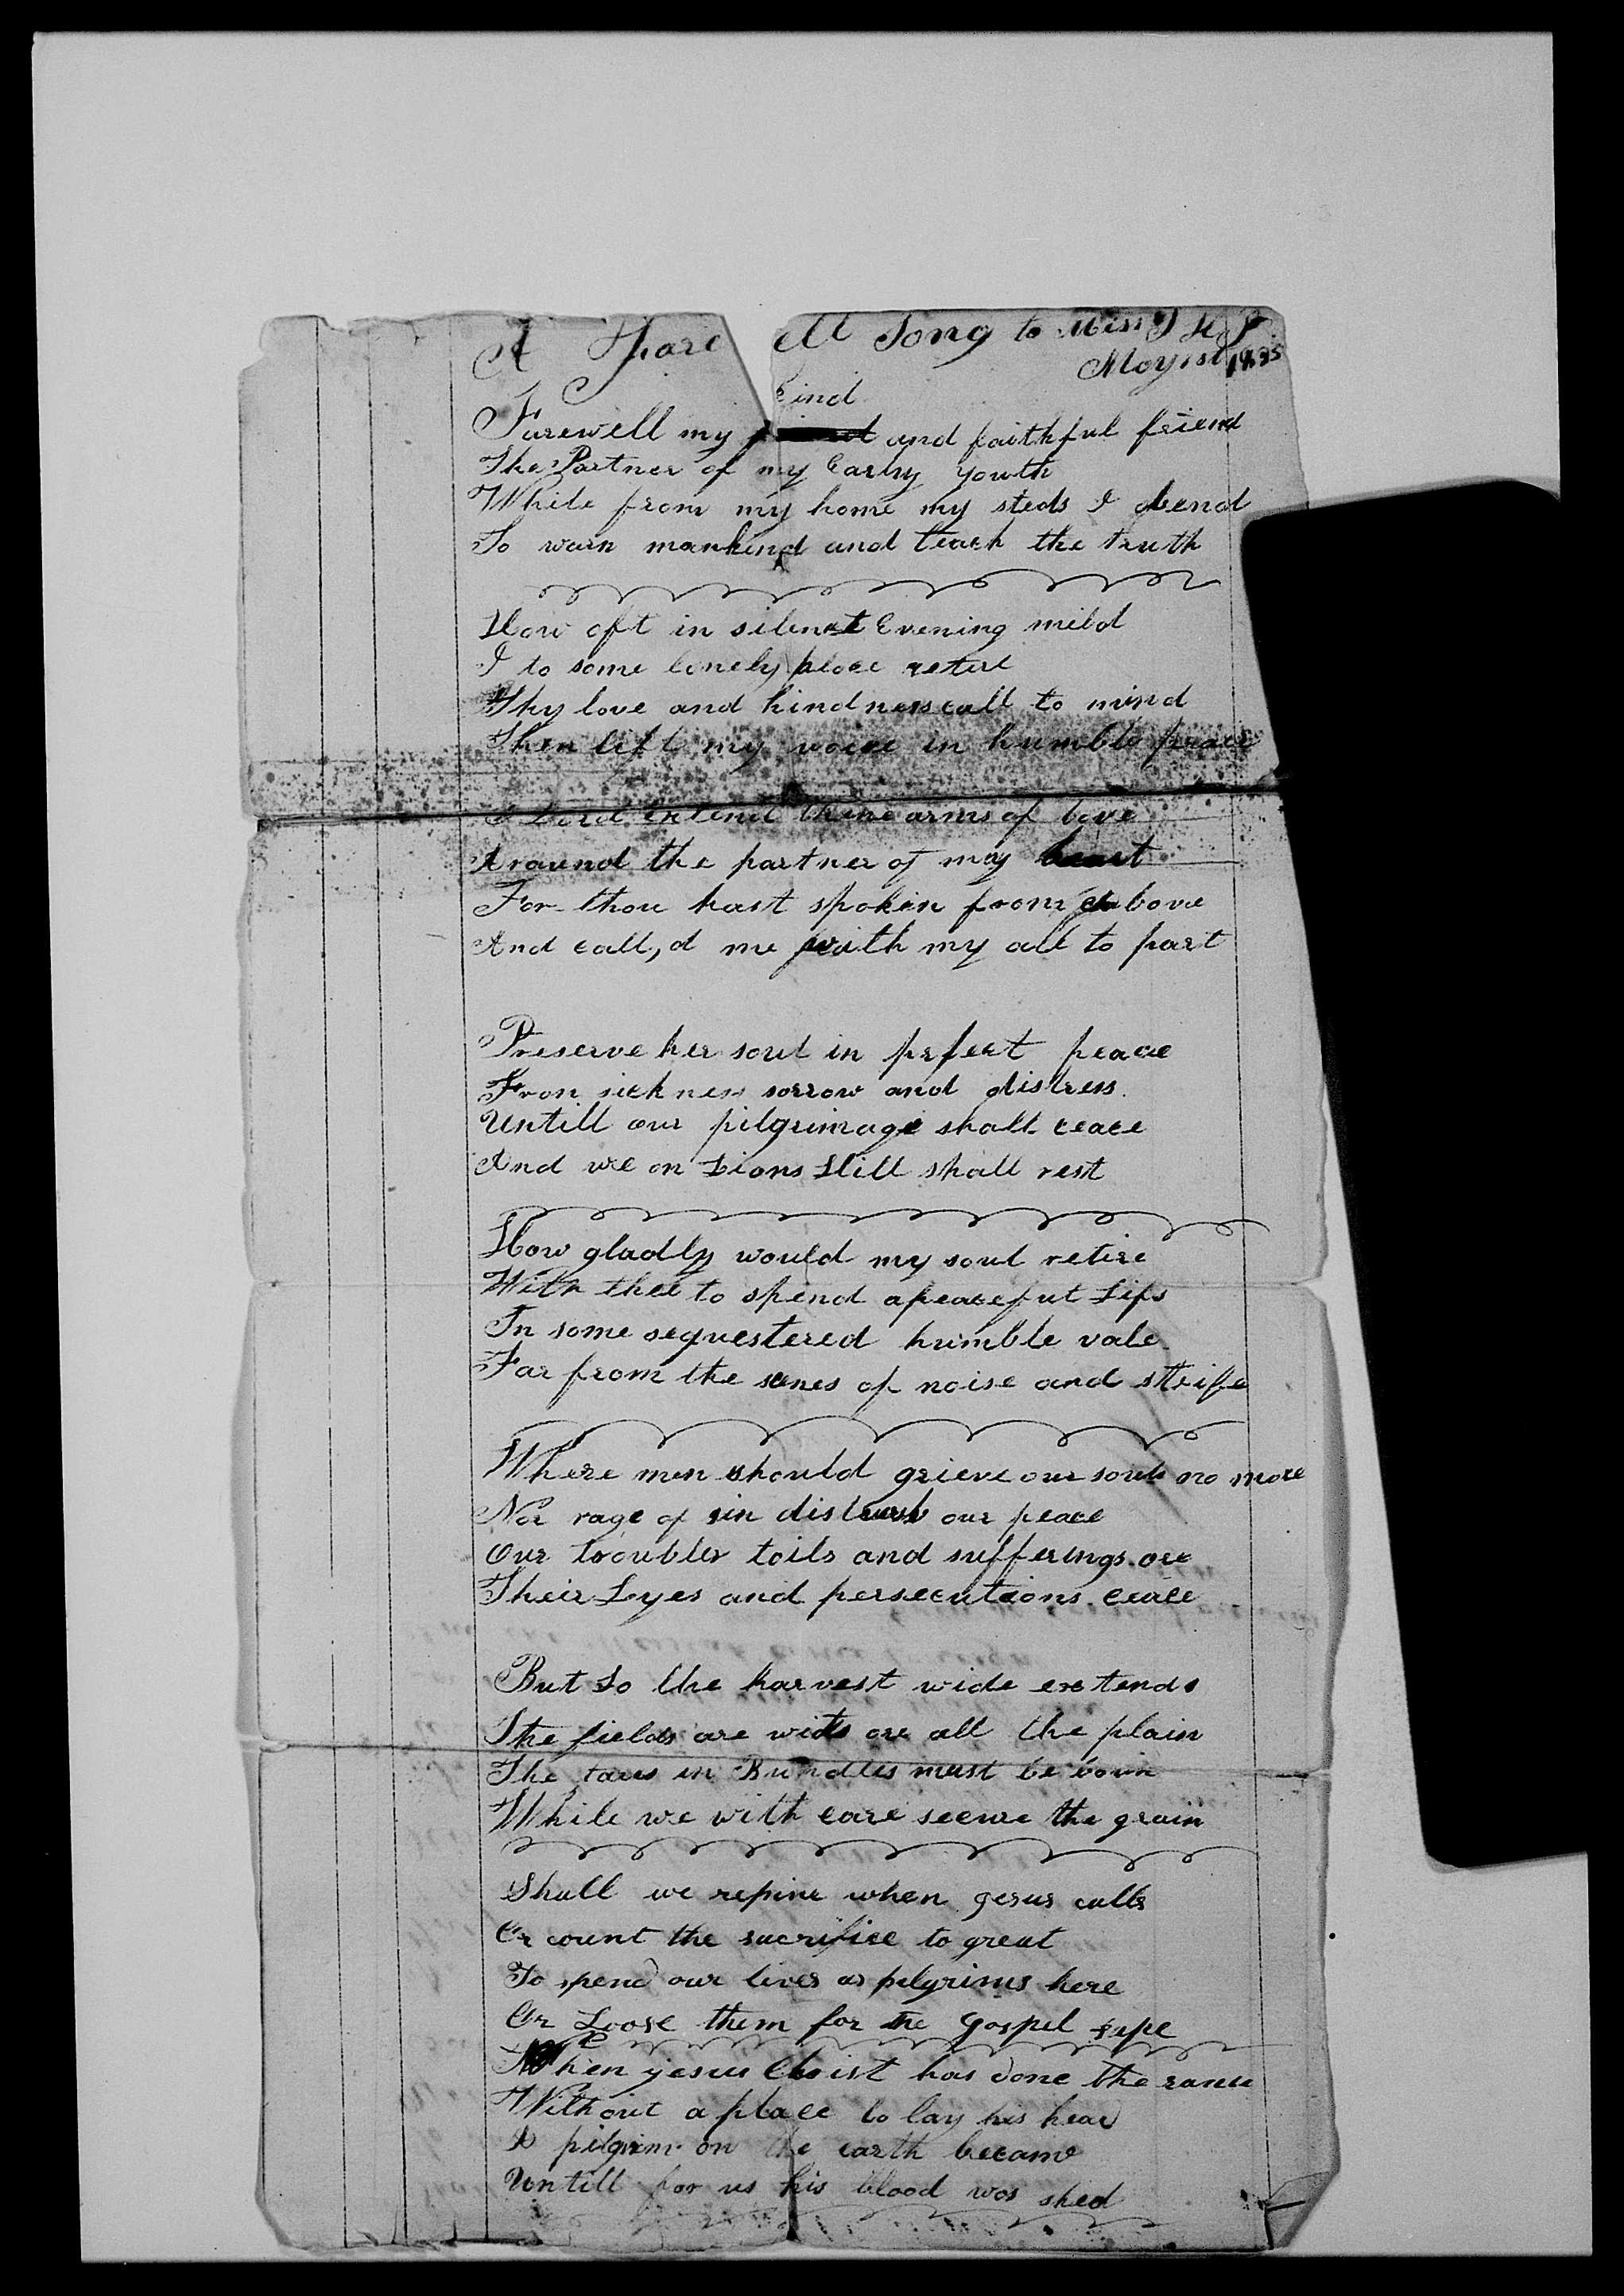 A Fare ell Song to Miss J H P
May 1st 1835
kind
Farewell my and faithful friend
The Partner of my Early youth
While from my home my steds I bend
To warn mankind and teach the truth
How oft in silent Evening mild
I to some lonely place retire
Thy love and kindness call to mind
Then lift my voice in humble praice
O Lord Extend thine arms of love
Around the partner of my heart
For thou hast spoken from above
And call,d me with my all to part
Preserve her soul in prfect peace
From sickness sorrow and distress.
Untill our pilgrimage shall ceace
And we on Zions Hill shall rest
How gladly would my soul retire
With thee to spend a peaceful Life
In some sequestered humble vale
Far from the senes of noise and strife
Where men should grieve our souls no more
Nor rage of sin disturb our peace
Our troubles toils and sufferings ore
Their Lyes and persecutions ceace
But Lo the harvest wide extends
The fields are wite ore all the plain
The tares in Bundles must be boun
While we with care secure the grain
Shall we repine when jesus calls
Or count the sacrifice to great
To spend our lives as pilgrims here
Or Loose them for the Gospel sake
When jesus Christ has done the same
Without a place to lay his head
A pilgrim on the earth became
Untill for us his blood was shed